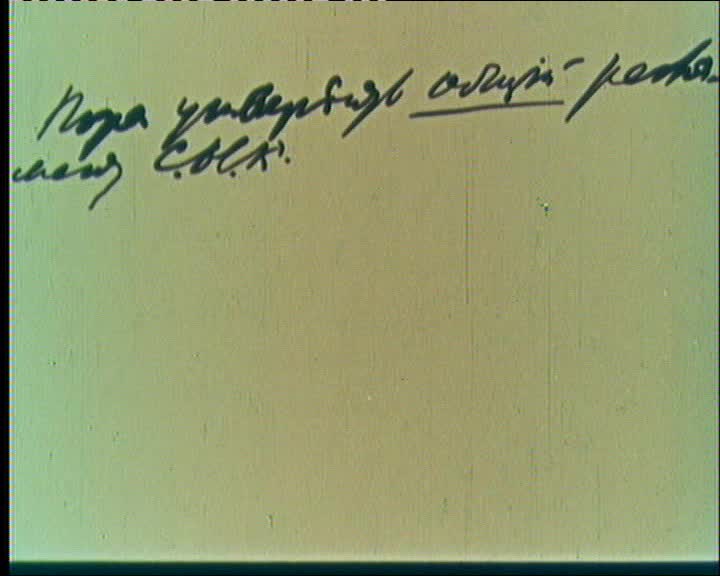 Пора утвердить общий регла-
мент С.Н.К.